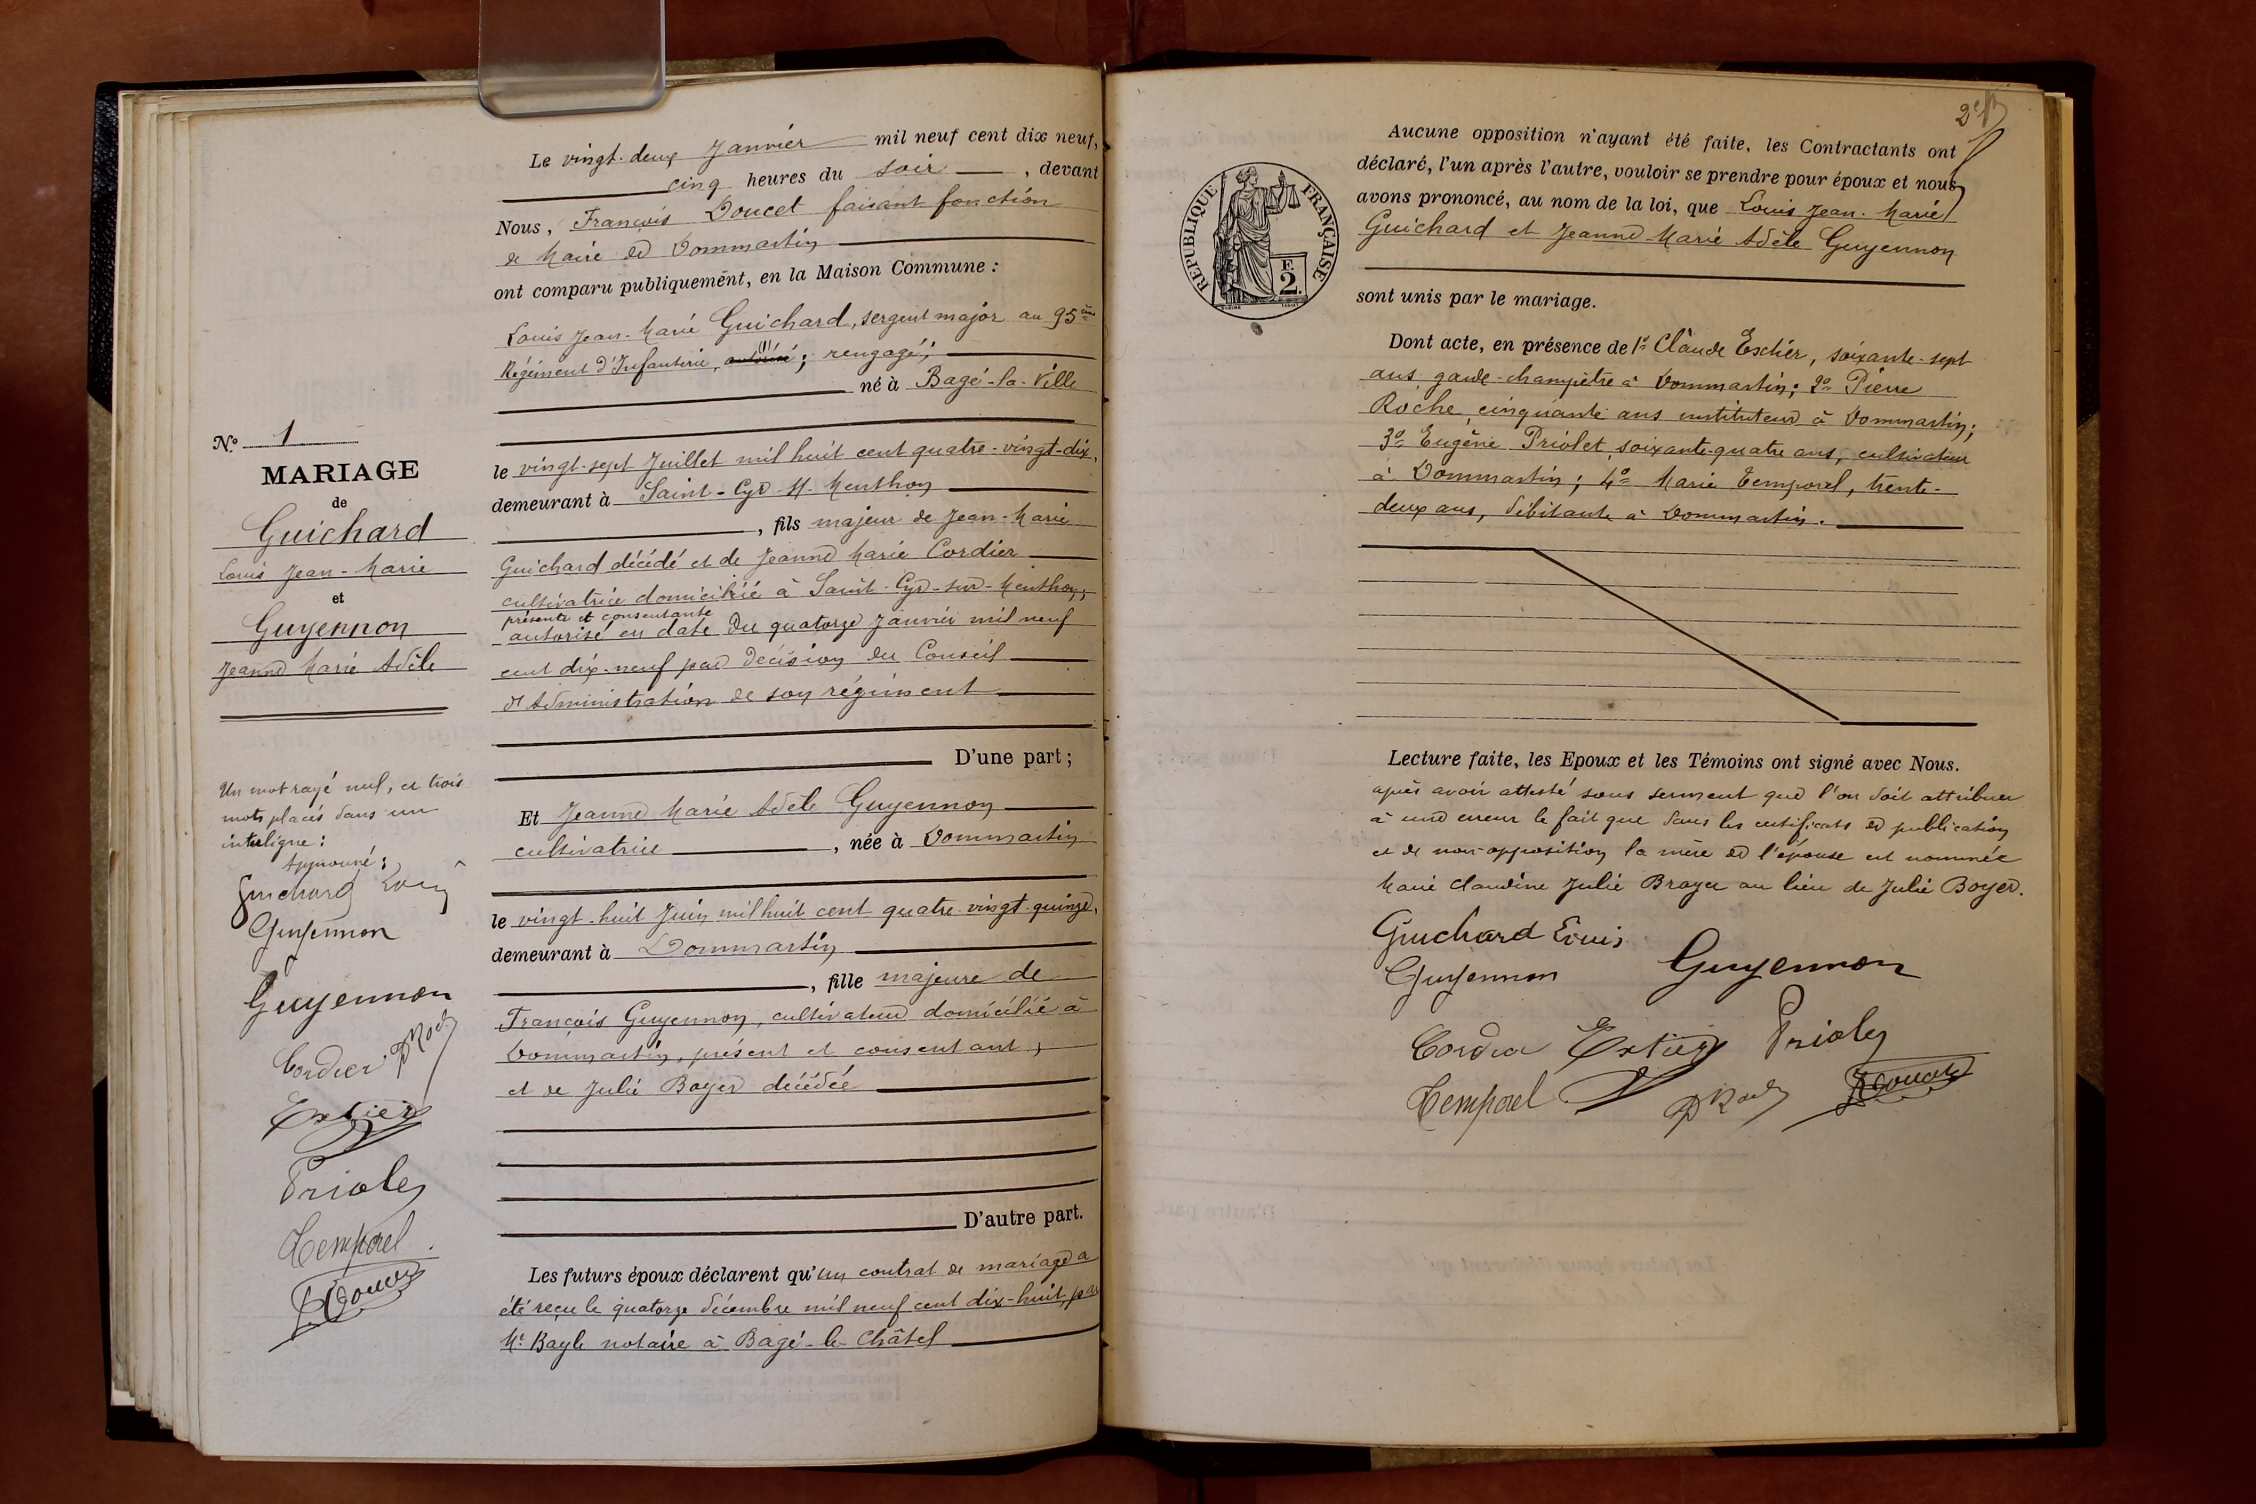 Le vingt-deux Janvier mil neuf cent dix neuf,
cinq heures du soir, devant
Nous, François Doucet faisant fonction
de Maire de Dommartin
ont comparu publiquement, en la Maison Commune :
Louis Jean-Marie Guichard, sergent major au 95ème
Régiment d'Infanterie, autorisé; rengagé;
né à Bagé-la-Ville
le vingt-sept Juillet mil huit cent quatre-vingt-dix,
demeurant à Saint-Cyr-s/-Menthon
, fils majeur de Jean-Marie
Guichard décédé et de Jeanne Marie Cordier
cultivatrice domiciliée à Saint-Cyr-sur-Menthon,
présente et consentante
autorisé en date du quatorze Janvier mil neuf
cent dix-neuf par décision du Conseil
d'Administration de son régiment
D'une part ;
Et Jeanne Marie Adèle Guyennon
cultivatrice, née à Dommartin
le vingt-huit Juin mil huit cent quatre-vingt-quinze,
demeurant à Dommartin
, fille majeure de
François Guyennon, cultivateur domicilié à
Dommartin, présent et consentant,
et de Julie Boyer décédée
D'autre part.
Les futurs époux déclarent qu'un contrat de mariage a
été reçu le quatorze décembre mil neuf cent dix-huit, par
Me Bayle notaire à Bagé-le-Châtel
No 1
MARIAGE
de
Guichard
Louis Jean-Marie
et
Guyennon
Jeanne Marie Adèle
Un mot rayé nul, et trois
mots placés dans un
interligne :
Approuvé :
Guichard Louis
Guyennon
Guyennon
Cordier P Roche
Extier
Priolet
Temporel
Doucet
2e
REPUBLIQUE FRANÇAISE
E
2.
Aucune opposition n'ayant été faite, les Contractants ont
déclaré, l'un après l'autre, vouloir se prendre pour époux et nous
avons prononcé, au nom de la loi, que Louis Jean-Marie
Guichard et Jeanne Marie Adèle Guyennon
sont unis par le mariage.
Dont acte, en présence de 1° Claude Extier, soixante-sept
ans garde-champêtre à Dommartin; 2° Pierre
Roche, cinquante ans instituteur à Dommartin;
3° Eugène Priolet, soixante-quatre ans, cultivateur
à Dommartin; 4° Marie Temporel, trente-
deux ans, débitante à Dommartin.
Lecture faite, les Epoux et les Témoins ont signé avec Nous.
après avoir attesté sous serment que l'on doit attribuer
à une erreur le fait que dans les certificats de publication
et de non-opposition la mère de l'épouse est nommée
Marie Claudine Julie Broyer au lieu de Julie Boyer.
Guichard Louis
Guyennon Guyennon
Cordier Extier Priolet
Temporel P Roche Doucet